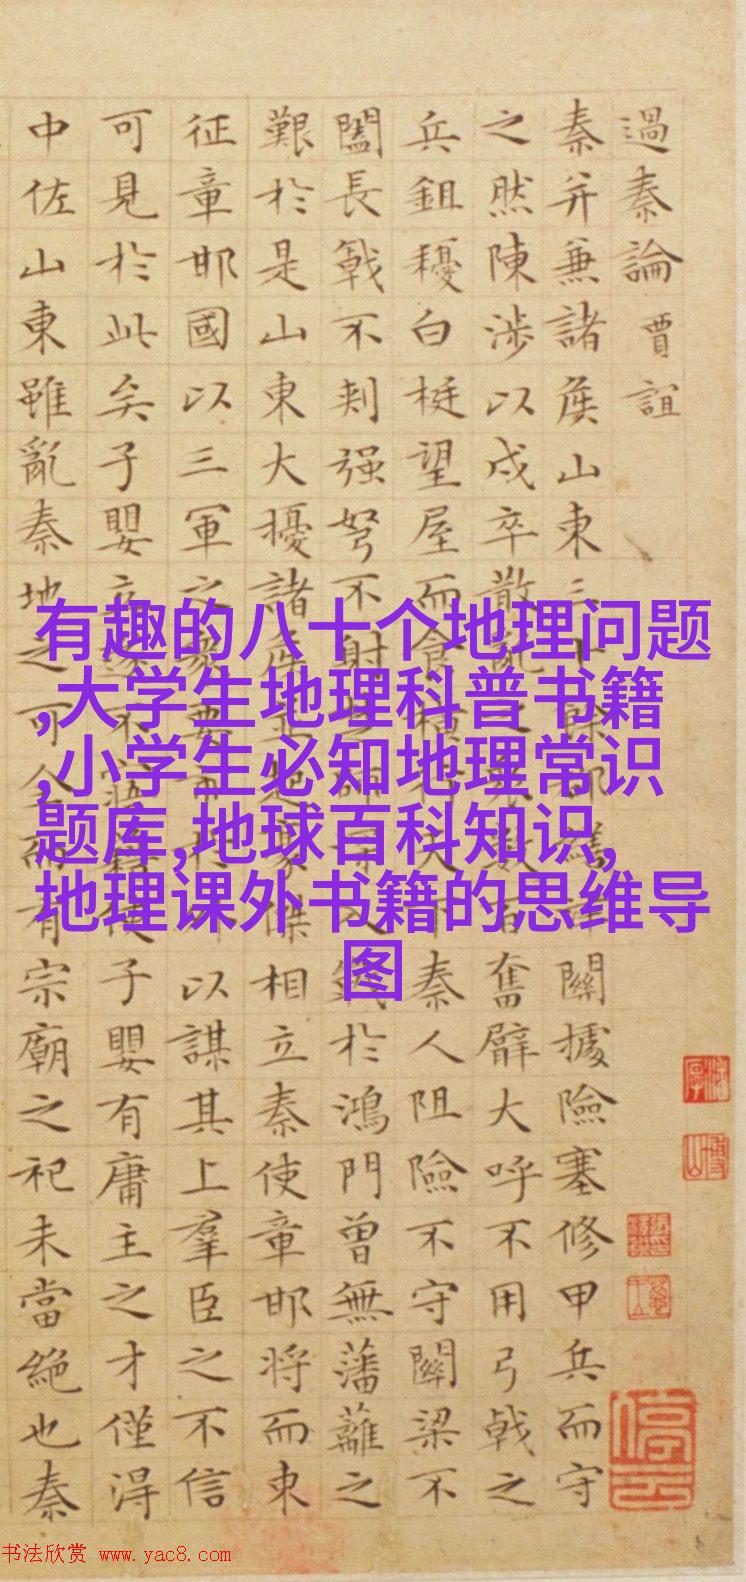 過秦論 賈誼
秦并兼諸侯山東三十餘郡繕津關據險塞修甲兵而守
之然陳涉以戍卒散亂之衆數百奮臂大呼不用弓戟之
兵鉏耰白梃望屋而食橫行天下秦人阻險不守關梁不
闔長戟不刺强弩不射楚師深入戰於鴻門曾無藩籬之
艱於是山東大擾諸侯並起豪傑相立秦使章邯將而東
征章邯國以三軍之衆要市於外以謀其上羣臣之不信
可見於此矣子嬰立遂不寤藉使子嬰有庸主之才僅得
中佐山東雖亂秦地之可全而有宗廟之祀未當絶也秦
有趣的八十个地理问题
,大学生地理科普书籍
,小学生必知地理常识
题库,地球百科知识,
地理课外书籍的思维导
图
书法欣赏 www.yac8.com